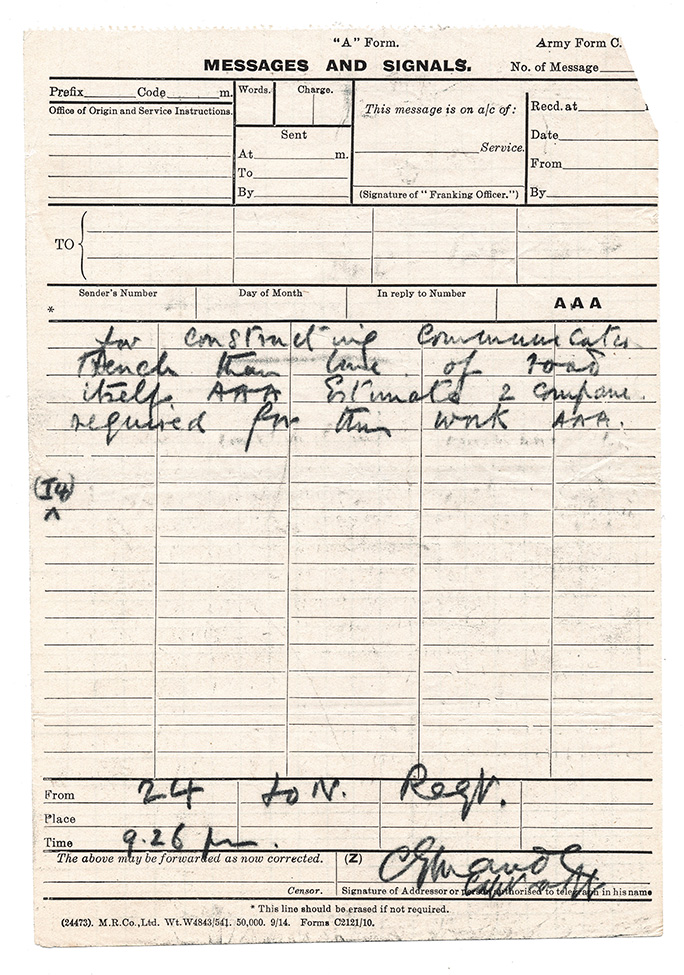 "A" Form. Army Form C.
MESSAGES AND SIGNALS. No. of Message
Prefix Code m.
Office of Origin and Service Instructions.
Words. Charge.
Sent
At m.
To
By
This message is on a/c of:
Service.
(Signature of "Franking Officer.")
Recd. at
Date
From
By
TO
Sender's Number Day of Month In reply to Number AAA
*
for constructing
trench than line of road
itself AAA Estimate 2
required for this work AAA.
From 24 Lon. Regt.
Place
Time 9.26 pm.
The above may be forwarded as now corrected. (Z)
Censor. Signature of Addressor or person authorised to telegraph in his name
* This line should be erased if not required.
(24473). M.R.Co.,Ltd. Wt.W4843/541. 50,000. 9/14. Forms C2121/10.